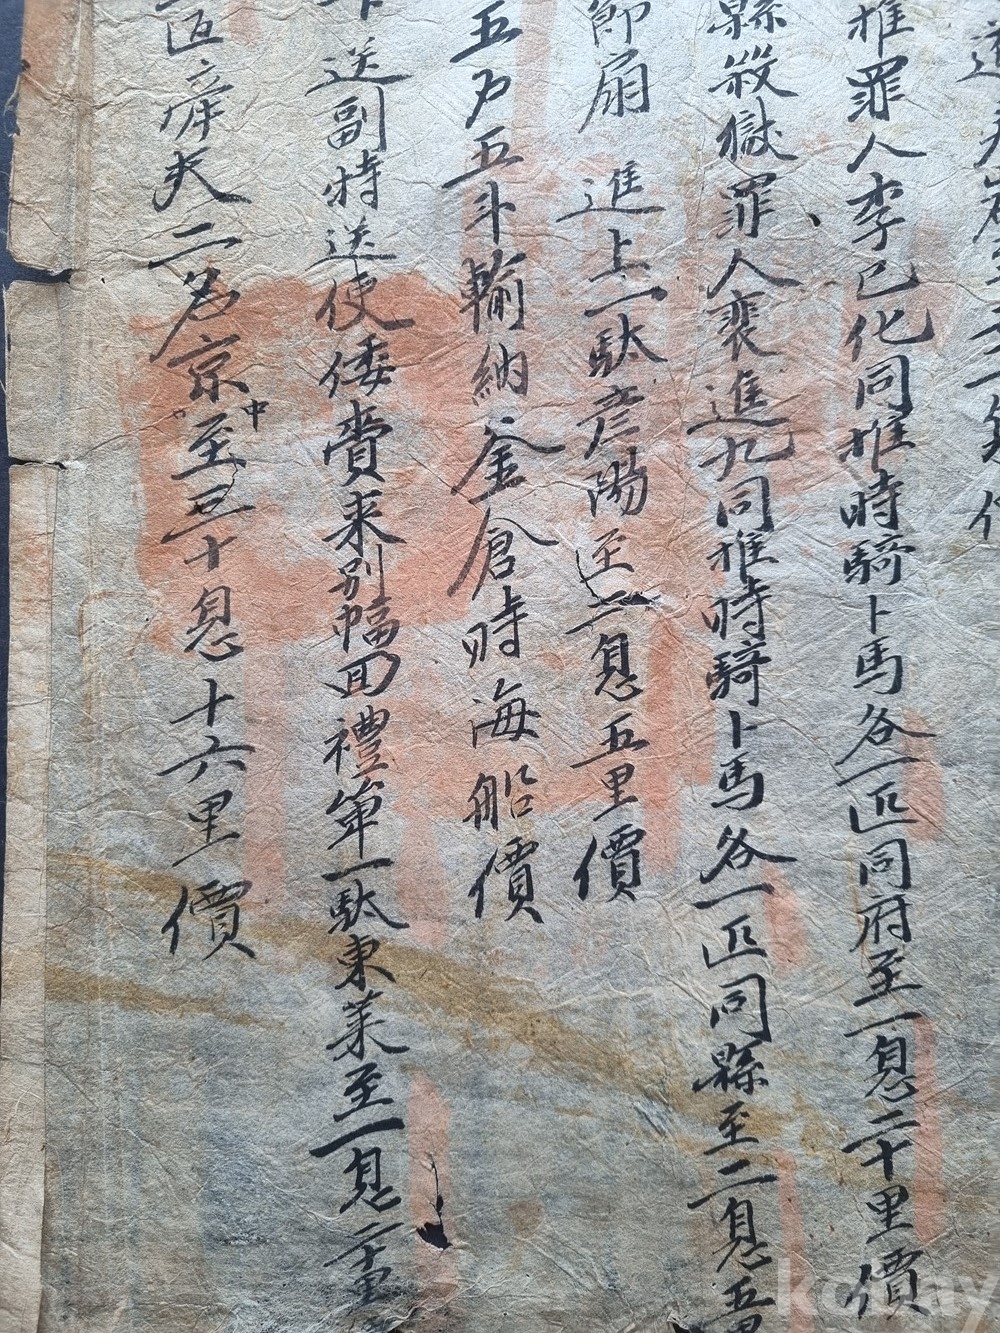 推罪人李已化同推時騎卜馬各一匹同府至一息二十里價
縣殺獄罪人裵進九同推時騎卜馬各一匹同縣至二息五里
節扇 進上一駄彦陽至二息五里價
五戶五斗輸納釜倉時海船價
送副特送使倭賷来別幅回禮第一駄東萊至一息二十里
匹牽夫二名京中至三十息十六里價